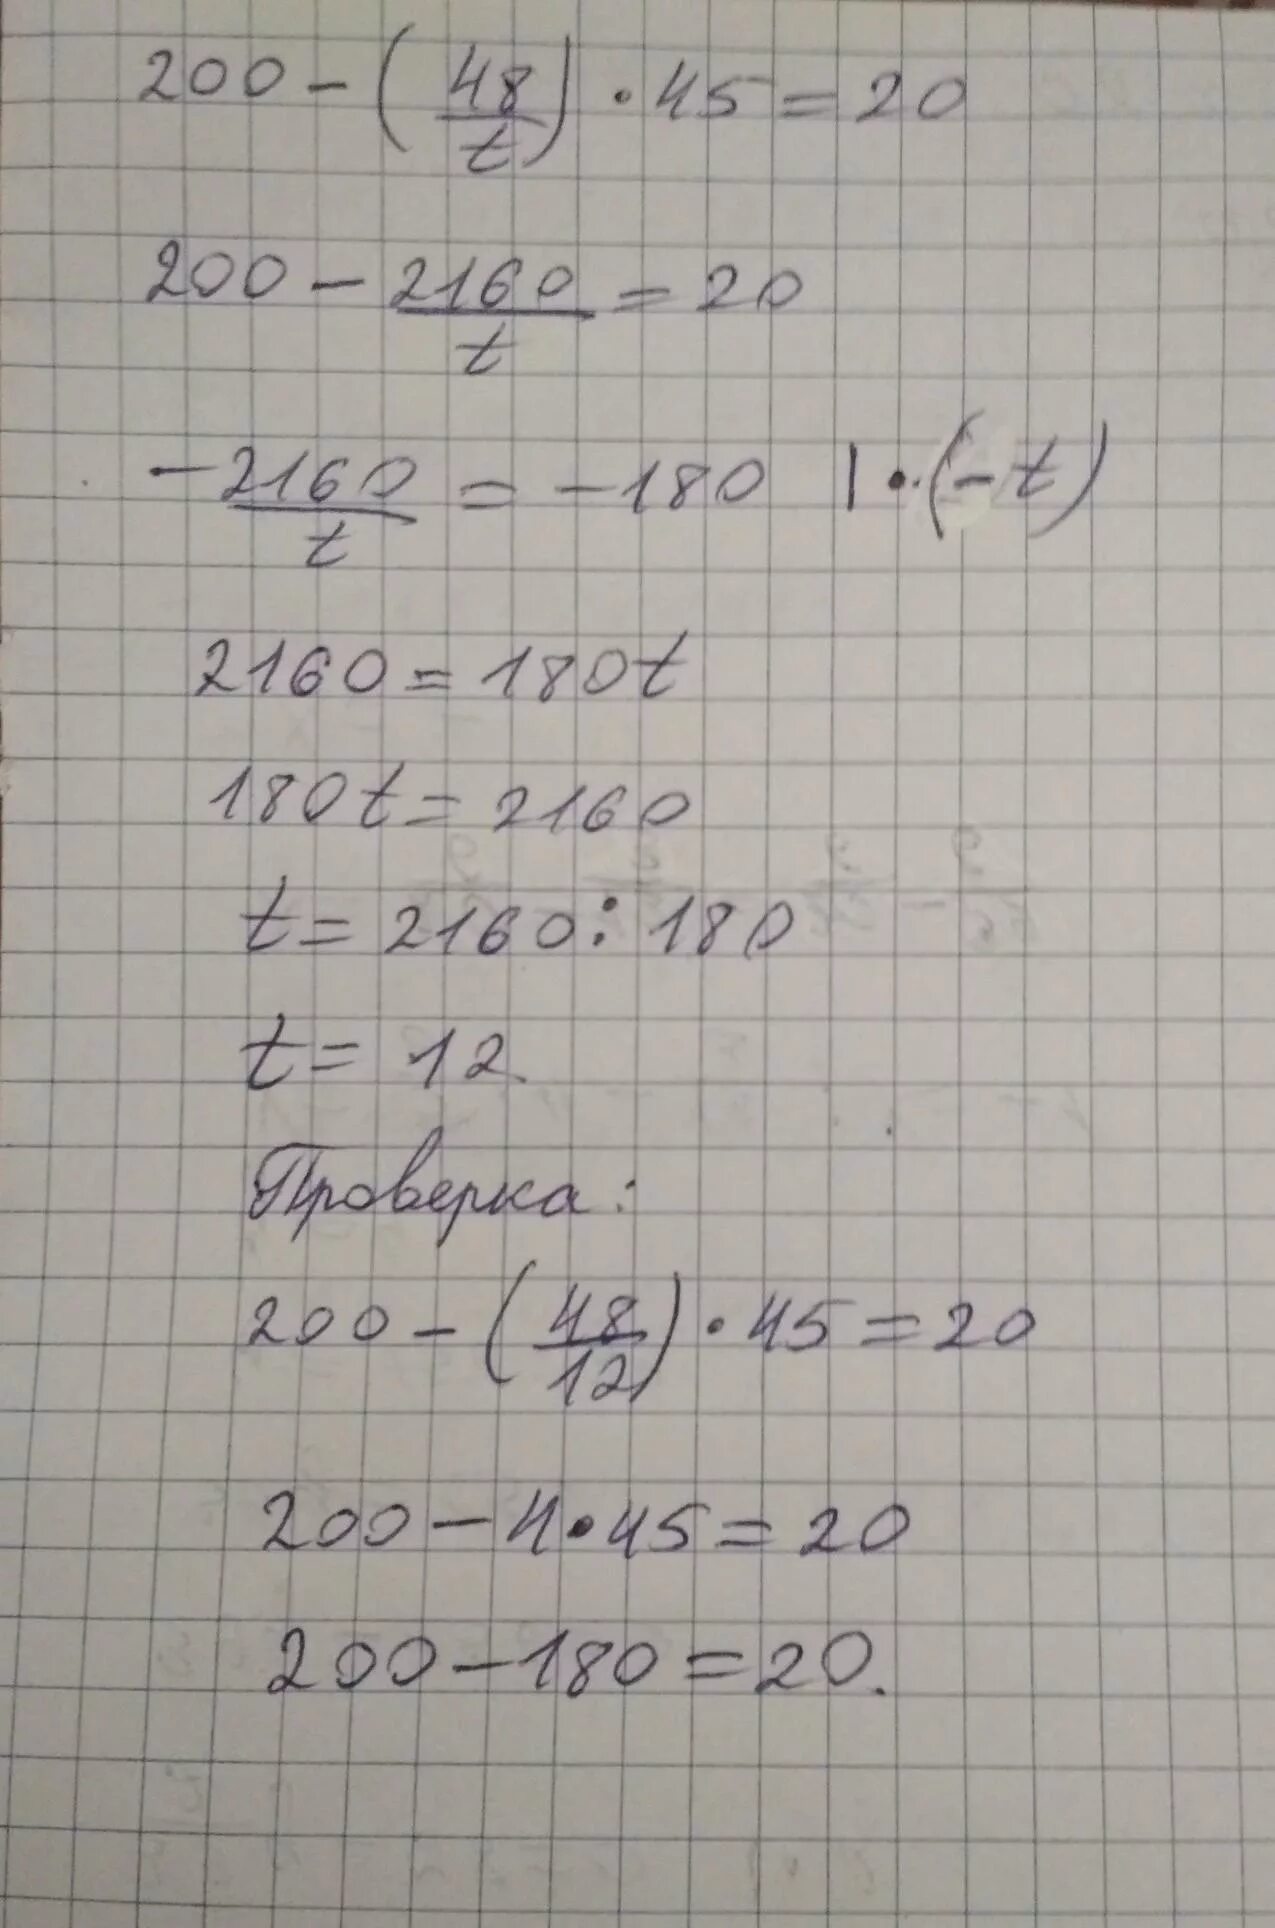 200 - (48/t) · 45 = 20
200 - 2160/t = 20
- 2160/t = -180 | · (-t)
2160 = 180t
180t = 2160
t = 2160 : 180
t = 12.
Проверка:
200 - (48/12) · 45 = 20
200 - 4 · 45 = 20
200 - 180 = 20.